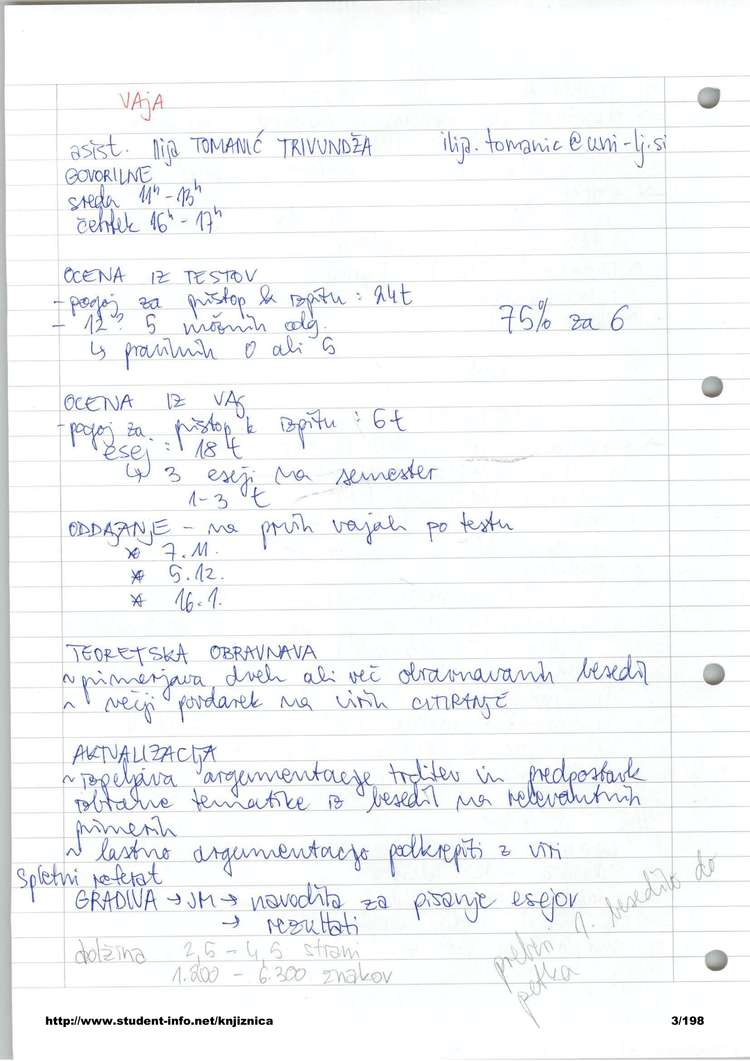 VAJA
asist. Ilija TOMANIĆ TRIVUNDŽA ilija.tomanic@uni-lj.si
GOVORILNE
sreda 11h - 13h
četrtek 16h - 17h
OCENA IZ TESTOV
- pogoj za pristop k izpitu : 24t
- 12? 5 možnih odg. 75% za 6
↳ pravilnih 0 ali 5
OCENA IZ VAJ
- pogoj za pristop k izpitu : 6t
esej : 18 t
↳ 3 eseji na semester
1-3 t
ODDAJANJE - na prvih vajah po testu
* 7.11.
* 5.12.
* 16.1.
TEORETSKA OBRAVNAVA
~ primerjava dveh ali več obravnavanih besedil
~ večji povdarek na virih CITIRANJE
AKTUALIZACIJA
~ izpeljava argumentacije trditev in predpostavk
izbrane tematike iz besedil na relevantnih
primerih
~ lastno argumentacijo podkrepiti z viri
Spletni referat
GRADIVA → JM → navodila za pisanje esejov
→ rezultati
dolžina 2,5 - 4,5 strani
1.800 - 6.300 znakov
preberi 1. besedilo do
petka
http://www.student-info.net/knjiznica 3/198